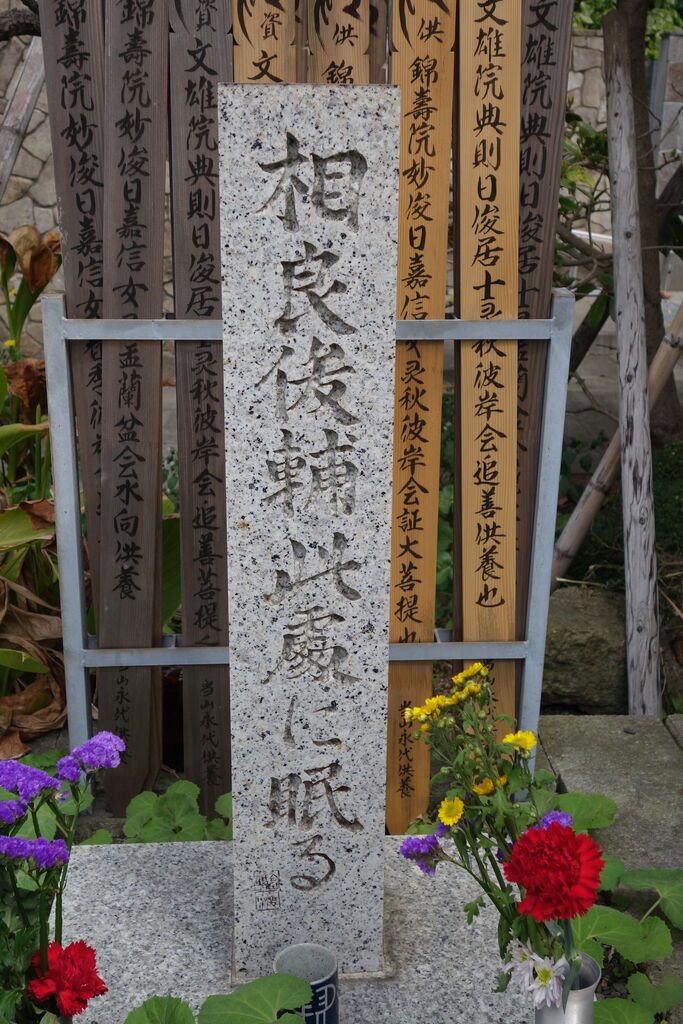 相良俊輔此處に眠る
文雄院典則日俊居士
文雄院典則日俊居士灵秋彼岸会追善供養也
供 錦壽院妙俊日嘉信女灵秋彼岸会証大菩提也
当山永代供養
供 錦
資 文
資 文雄院典則日俊居士灵秋彼岸会追善菩提
当山永代供養
錦壽院妙俊日嘉信女灵盂蘭盆会水向供養
山永代供養
錦壽院妙俊日嘉信女